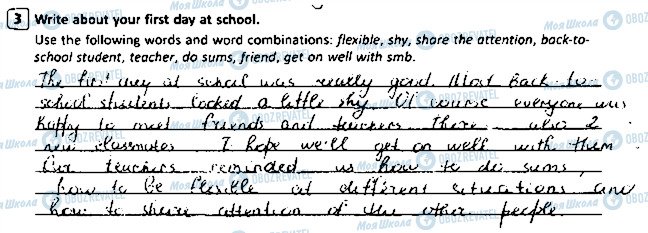 3 Write about your first day at school.
Use the following words and word combinations: flexible, shy, share the attention, back-to-
school student, teacher, do sums, friend, get on well with smb.
The first day at school was really good. Most Back-to-
school students looked a little shy. Of course everyone was
happy to meet friends and teachers. There also 2
new classmates. I hope we'll get on well with them
Our teachers reminded us how to do sums,
how to be flexible at different situations and
how to share attention of the other people.